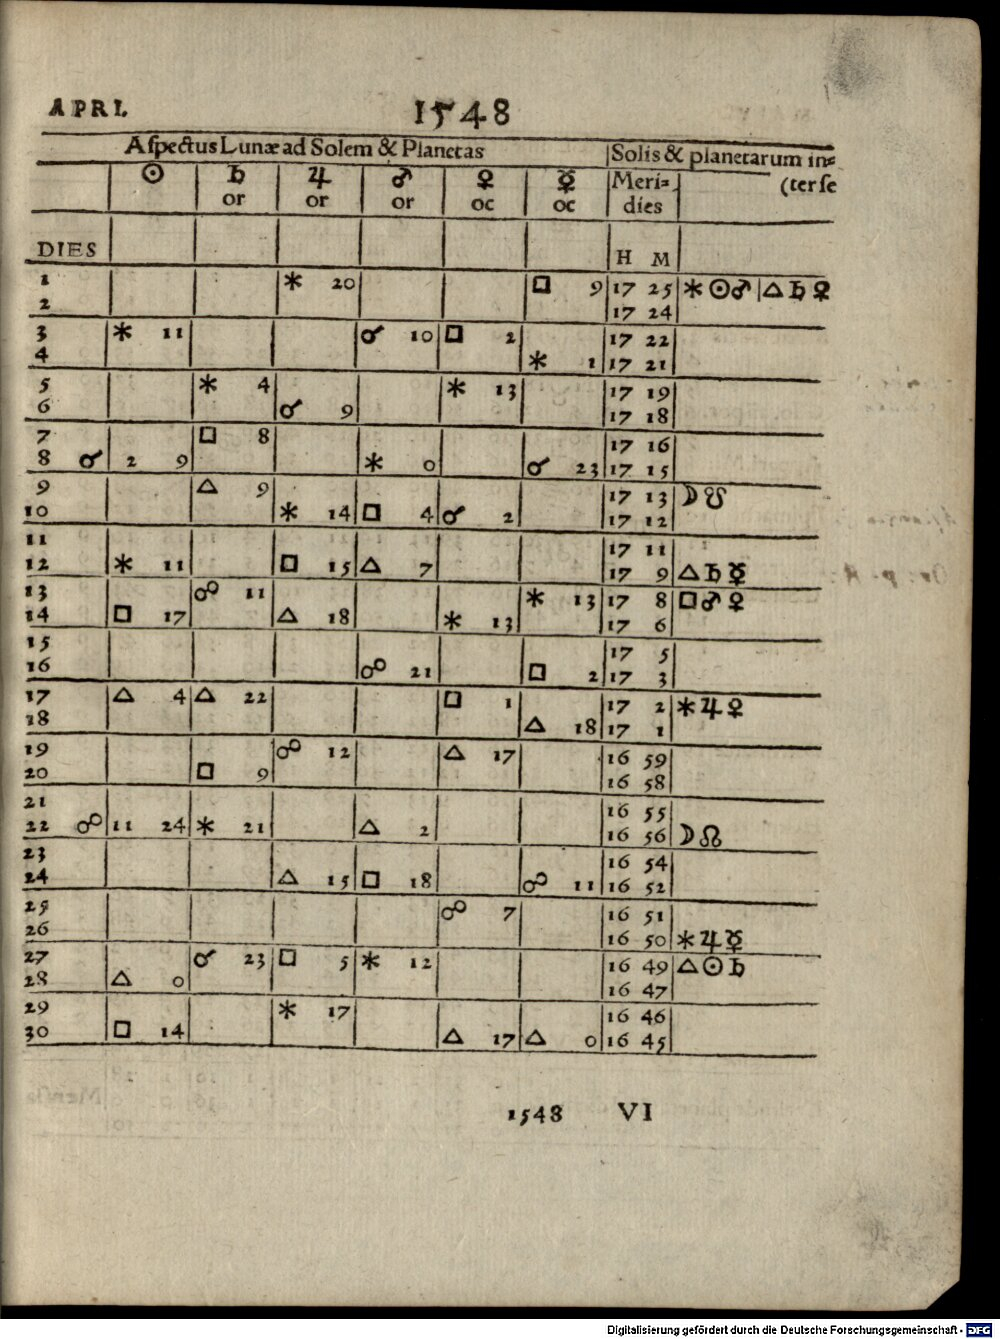 APRI. 1548
Aspectus Lunæ ad Solem & Planetas | Solis & planetarum in=
☉ ♄ ♃ ♂ ♀ ☿ Meri= (ter se
or or or oc oc dies
DIES H M
1 ⚹ 20 □ 9 17 25 ⚹ ☉ ♂ | △ ♄ ♀
2 17 24
3 ⚹ 11 ☌ 10 □ 2 17 22
4 ⚹ 1 17 21
5 ⚹ 4 ⚹ 13 17 19
6 ☌ 9 17 18
7 □ 8 17 16
8 ☌ 2 9 ⚹ 0 ☌ 23 17 15
9 △ 9 17 13 ☽ ☋
10 ⚹ 14 □ 4 ☌ 2 17 12
11 17 11
12 ⚹ 11 □ 15 △ 7 17 9 △ ♄ ☿
13 ☍ 11 ⚹ 13 17 8 □ ♂ ♀
14 □ 17 △ 18 ⚹ 13 17 6
15 17 5
16 ☍ 21 □ 2 17 3
17 △ 4 △ 22 □ 1 17 2 ⚹ ♃ ♀
18 △ 18 17 1
19 ☍ 12 △ 17 16 59
20 □ 9 16 58
21 16 55
22 ☍ 11 24 ⚹ 21 △ 2 16 56 ☽ ☊
23 16 54
24 △ 15 □ 18 ☍ 11 16 52
25 ☍ 7 16 51
26 16 50 ⚹ ♃ ☿
27 ☌ 23 □ 5 ⚹ 12 16 49 △ ☉ ♄
28 △ 0 16 47
29 ⚹ 17 16 46
30 □ 14 △ 17 △ 0 16 45
1548 VI
Digitalisierung gefördert durch die Deutsche Forschungsgemeinschaft - DFG